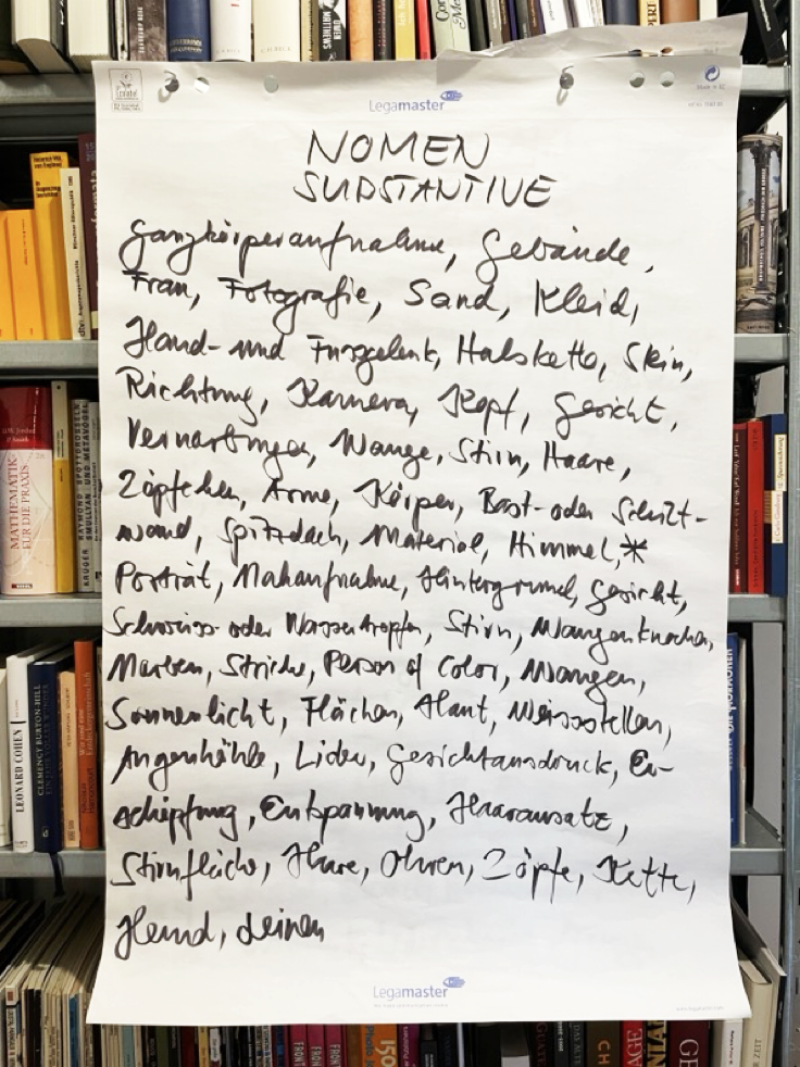 Legamaster
NOMEN
SUBSTANTIVE
Ganzkörperaufnahme, Gebäude,
Frau, Fotografie, Sand, Kleid,
Hand- und Fussgelenk, Halskette, Skin,
Richtung, Kamera, Kopf, Gesicht,
Vernarbungen, Wange, Stirn, Haare,
Zöpfchen, Arme, Körper, Bast- oder Schilf-
wand, Spitzdach, Material, Himmel,*
Porträt, Nahaufnahme, Hintergrund, Gesicht,
Schweiss- oder Wassertropfen, Stirn, Wangenknochen,
Narben, Striche, Person of Color, Wangen,
Sonnenlicht, Flächen, Haut, Weissstellen,
Augenhöhle, Lider, Gesichtausdruck, Er-
schöpfung, Entspannung, Haaransatz,
Stirnfläche, Haare, Ohren, Zöpfe, Kette,
Hemd, Leinen
Legamaster
MATHEMATIK
FÜR DIE PRAXIS
RAYMOND SMULLYAN
SPOTTDROSSELN UND METAVÖGEL
KRÜGER
LEONARD COHEN
CLEMENCY BURTON-HILL